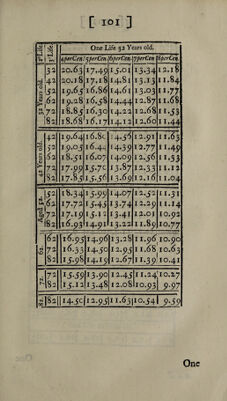 [ 101 ]
2ᵈ Life. 3ᵈ Life. One Life 32 Years old.
4 per Cen. 5 per Cen. 6 per Cen. 7 per Cen. 8 per Cen.
32 Years old.
32 20.63 17.49 15.01 13.34 12.18
42 20.18 17.18 14.81 13.13 11.84
52 19.65 16.86 14.61 13.03 11.77
62 19.28 16.58 14.44 12.87 11.68
72 18.85 16.30 14.22 12.77 11.55
82 18.68 16.17 14.12 12.60 11.44
42 Years old.
42 19.64 16.80 14.56 12.91 11.63
52 19.05 16.44 14.39 12.77 11.49
62 18.51 16.07 14.09 12.56 11.53
72 17.99 15.70 13.87 12.33 11.11
82 17.85 15.56 13.69 12.16 11.04
Aged 52.
52 18.34 15.99 14.07 12.52 11.31
62 17.72 15.45 13.74 12.29 11.14
72 17.19 15.12 13.41 12.01 10.92
82 16.93 14.91 13.22 11.89 10.77
62.
62 16.95 14.96 13.28 11.96 10.90
72 16.33 14.50 12.95 11.68 10.63
82 15.98 14.19 12.67 11.39 10.41
72.
72 15.59 13.90 12.45 11.24 10.27
82 15.12 13.48 12.08 10.93 9.97
82.
82 14.50 12.95 11.63 10.54 9.59
One